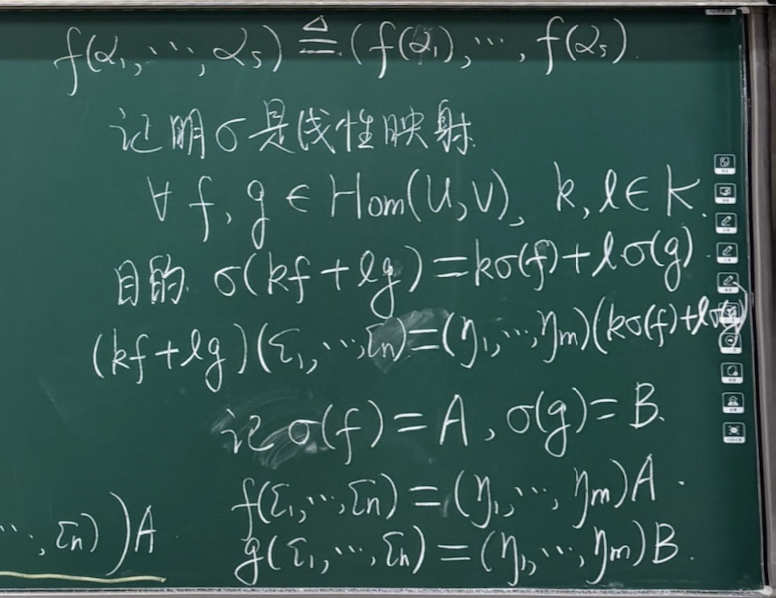 f(α₁,⋯,αₛ) ≜ (f(α₁),⋯,f(αₛ))
证明σ是线性映射.
∀ f,g ∈ Hom(U,V), k,l ∈ K.
目的 σ(kf+lg)=kσ(f)+lσ(g).
(kf+lg)(ξ₁,⋯,ξₙ)=(η₁,⋯,ηₘ)(kσ(f)+lσ(g))
记 σ(f)=A, σ(g)=B.
f(ξ₁,⋯,ξₙ)=(η₁,⋯,ηₘ)A.
⋯,ξₙ))A
g(ξ₁,⋯,ξₙ)=(η₁,⋯,ηₘ)B.